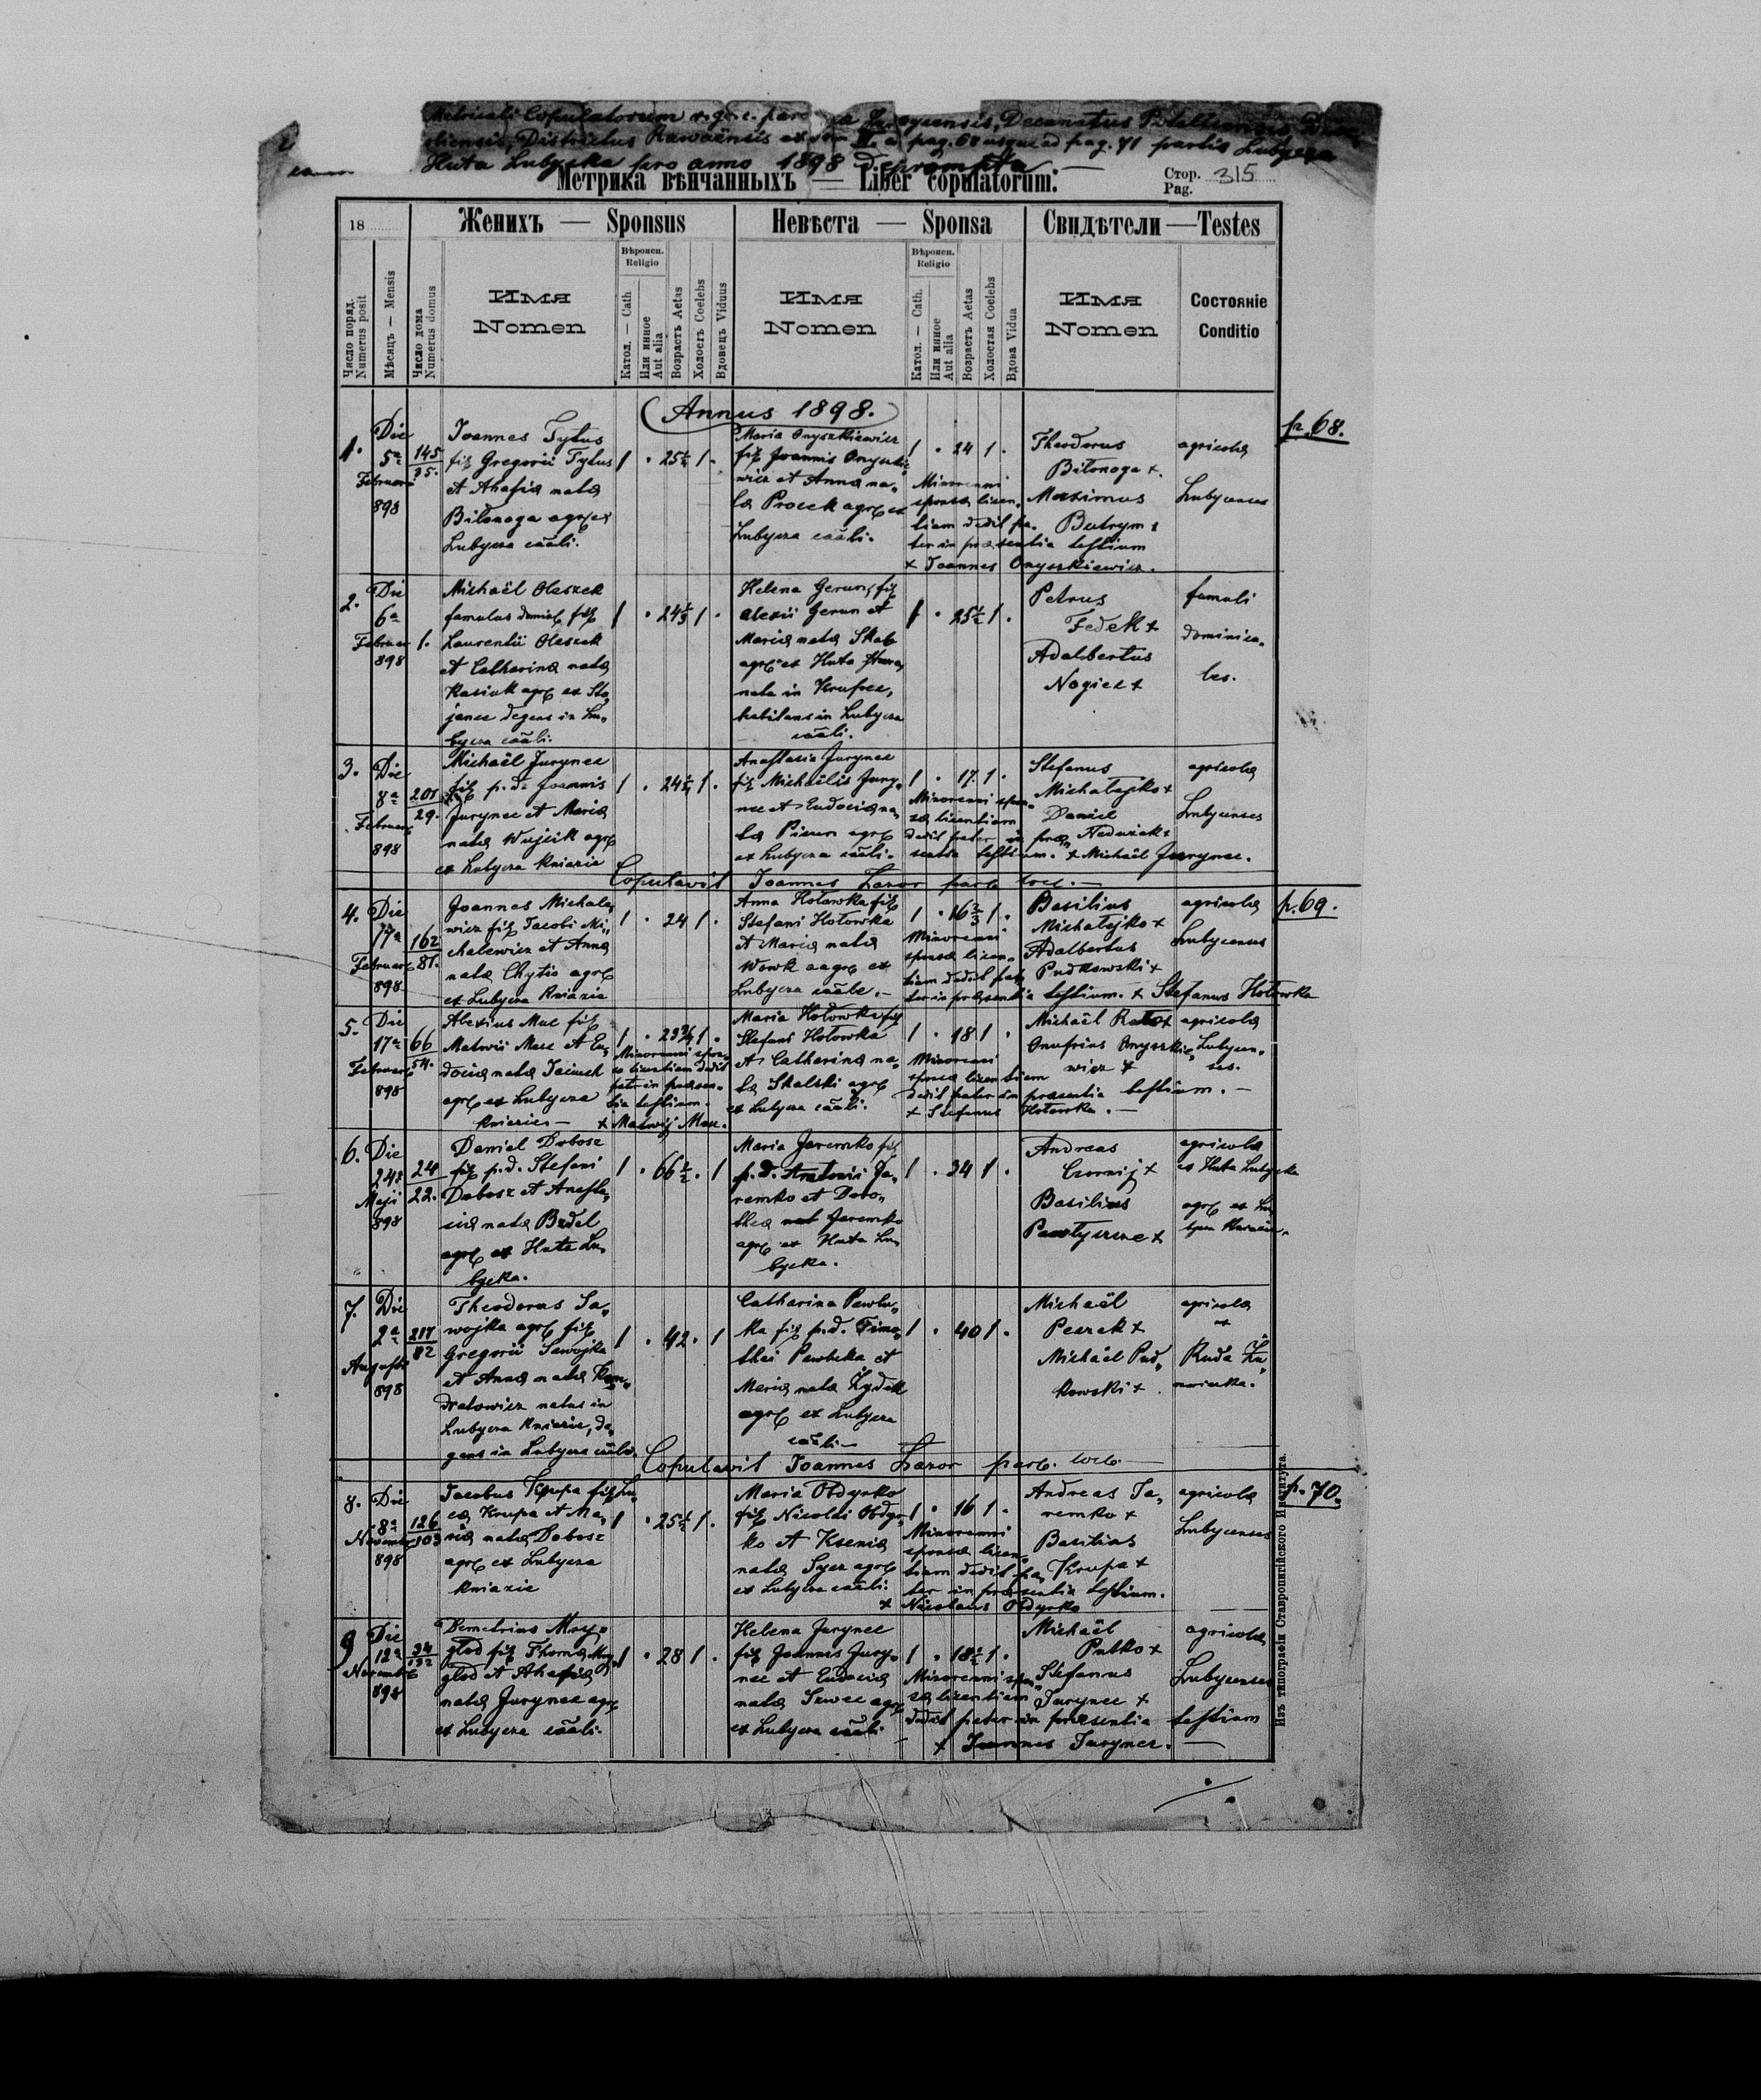 Metricali Copulatorum r. g. c. Decanatus
Districtus Rawaënsis a pag. 68 usque ad pag. 71 partis Lubycza
Huta Lubycka pro anno 1898 deprompta
Метрика вѣнчанныхъ — Liber copulatorum.
Стор. Pag. 315
18
Женихъ — Sponsus
Невѣста — Sponsa
Свидѣтели — Testes
Число поряд. Numerus posit
Мѣсяцъ — Mensis
Число дома Numerus domus
Имя Nomen
Вѣроисп. Religio
Катол. — Cath
Или инное Aut alia
Возрастъ Aetas
Холостъ Coelebs
Вдовецъ Viduus
Имя Nomen
Вѣроисп. Religio
Катол. — Cath.
Или инное Aut alia
Возрастъ Aetas
Холостая Coelebs
Вдова Vidua
Имя Nomen
Состояніе Conditio
Annus 1898.
p. 68.
1. Die 5ª Februarii 898
145/95.
Joannes Tytus
fil. Gregorii Tytus
et Ahafia nata
Biłonoga agr. ex
Lubycza caäli.
1 . 25½ 1 .
Maria Onyszkiewicz
fil. Joannis Onyszkie„
wicz et Anna na„
ta Procek agr. ex
Lubycza caäli.
1 . 24 1 .
Minorenni
sponsa licen„
tiam dedit pa„
ter in præsentia testium
+ Joannes Onyszkiewicz.
Theodorus
Biłonoga +.
Maximus
Butrym +
agricola
Lubycenses
2. Die 6ª Februarii 898
1.
Michaël Oleszek
famulus fil.
Laurentii Oleszek
et Catharina nata
Kasiuk agr. ex Sta„
janee degens in Lu„
bycza caäli.
1 . 24⅓ 1 .
Helena Gerun, fil.
Alexii Gerun et
Maria nata Skab
agr. ex Huta
nata in
habitans in Lubycza
caäli.
1 . 25½ 1 .
Petrus
Fedek +
Adalbertus
Nogiec +
famuli
dominica„
les.
3. Die 8ª Februarii 898
201/29.
Michaël Jurynec
fil. p. d. Joannis
Jurynec et Maria
nata Wujcik agr.
ex Lubycza kniazie
1 . 24½ 1 .
Anastasia Jurynec
fil. Michaëlis Jury„
nec et Eudocia na„
ta Pisun agr.
ex Lubycza caäli.
1 . 17. 1 .
Minorenni spon„
sa licentiam
dedit pater in præ„
sentia testium. + Michaël Jurynec.
Stefanus
Michałejko +
Daniel
agricola
Lubycenses
Copulavit Joannes Łazor paro. loci. —
p. 69.
4. Die 17ª Februarii 898
162/81.
Joannes Michale„
wicz fil. Jacobi Mi„
chalewicz et Anna
nata Chytio agr.
ex Lubycza Kniazie
1 . 24 1 .
Anna Hołowka fil.
Stefani Hołowka
et Maria nata
Wowk aagr. ex
Lubycza caäle. —
1 . 16⅔ 1 .
Minorenni
sponsa licen„
tiam dedit pa„
ter in præsentia testium. + Stefanus Hołowka
Basilius
Michałejko +
Adalbertus
Pudkowski +
agricola
Lubycenses
5. Die 17ª Februarii 898
66/54.
Alexius Mac fil.
Matwii Mac et Eu„
docia nata Jaciuch
agr. ex Lubycza
kniazie —
1 . 23¾ 1 .
Minorenni spon„
so licentiam dedit
pater in præsen„
tia testium.
+ Matwij Mac.
Maria Hołowka fil.
Stefani Hołowka
et Catharina na„
ta Skalski agr.
ex Lubycza caäli.
1 . 18 1 .
Minorenni
sponsa licentiam
dedit pater in præsentia testium. —
+ Stefanus Hołowka. —
Michaël
Onufrius Onyszkie„
wicz +
agricola
Lubycen„
ses.
6. Die 24ª Maji 898
24/22.
Daniel Dobosz
fil. p. d. Stefani
Dobosz et Anasta„
sia nata Budel
agr. ex Huta Lu„
bycka.
1 . 66½ . 1
Maria Jaremko fil.
p. d. Anatonii Ja„
remko et Doro„
thea nat Jaremko
agr. ex Huta Lu„
bycka.
1 . 34 1 .
Andreas
Czornij +
Basilius
+
agricola
ex Huta Lubycka
agr. ex Lu„
bycza Kniazie.
7. Die 2ª Augusti 898
217/82
Theodorus Sa„
wojka agr. fil.
Gregorii Sawojka
et Anna nata Kon„
dratowicz natus in
Lubycza Kniazie, de„
gens in Lubycza caäli.
1 . 42 . 1
Catharina Pawlu„
ka fil. p. d. Timo„
thei Pawluka et
Maria nata Żydek
agr. ex Lubycza
caäli —
1 . 40 1 .
Michaël
Peszek +
Michaël Pud„
kowski +
agricola
ex
Ruda Żu„
rawiecka.
Copulavit Joannes Łazor paro. loci. —
p. 70.
8. Die 8ª Novembris 898
126/103
Jacobus Krupa fil. Lu„
ca Krupa et Ma„
ria nata Dobosz
agr. ex Lubycza
kniazie
1 . 25½ 1 .
Maria Obdyrko
fil. Nicolai Obdyr„
ko et Ksenia
nata Syez agr.
ex Lubycza caäli.
1 . 16 1 .
Minorenni
sponsa licen„
tiam dedit pa„
ter in præsentia testium.
+ Nicolaus Obdyrko
Andreas Ja„
remko +
Basilius
Krupa +
agricola
Lubycenses
9 Die 12ª Novembris 898
34/132
Demetrius Mryo„
glod fil. Thoma Mryo„
glod et Ahafia
nata Jurynec agr.
ex Lubycza caäli.
1 . 28 1 .
Helena Jurynec
fil. Joannis Jury„
nec et Eudocia
nata Szwec agr.
ex Lubycza caäli
1 . 18½ 1 .
Minorenni spon„
sa licentiam
dedit pater in præsentia testium
+ Joannes Jurynec. —
Michaël
Putko +
Stefanus
Jurynec +
agricola
Lubycenses
Изъ типографіи Ставропигійского Института.